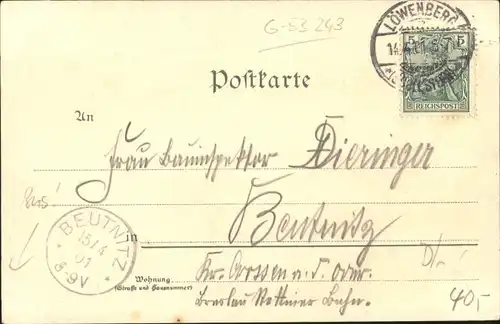 G-53 243
LÖWENBERG
5 5
REICHSPOST
Postkarte
An
Frau Bauinspektor Dieringer
Beutnitz
in
BEUTNITZ
15/4
01
8-9V
Wohnung
(Straße und Hausnummer)
Kr. Crossen a. d. Oder.
Breslau Stettiner Bahn.
40,-